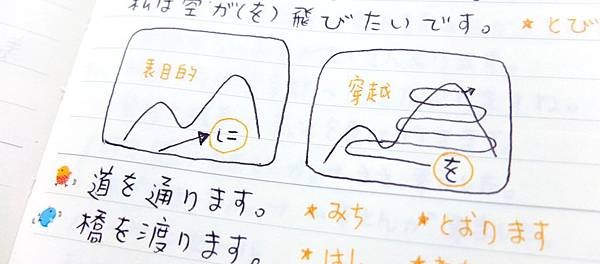 私は空が(を)飛びたいです。 ★とび
表目的
に
穿越
を
道を通ります。 ★みち ★とおります
橋を渡ります。 ★はし ★わた